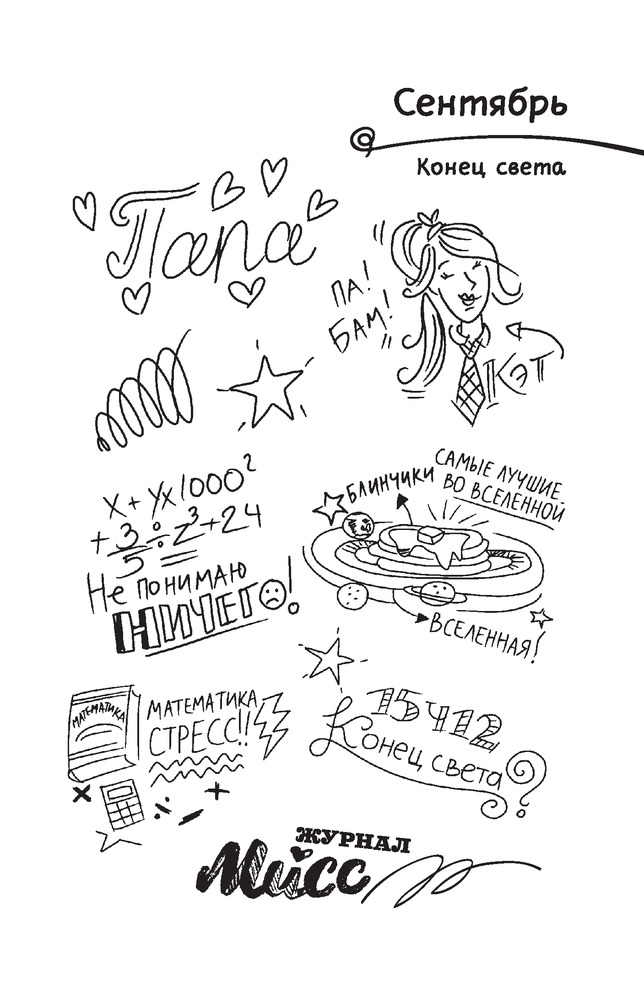 Сентябрь
Конец света
Папа
ПА!
БАМ!
КЭТ
X + Yx1000²
+ 3/5 ÷ Z³ + 24
НЕ ПОНИМАЮ
НИЧЕГО!
БЛИНЧИКИ
САМЫЕ ЛУЧШИЕ
ВО ВСЕЛЕННОЙ
ВСЕЛЕННАЯ!
МАТЕМАТИКА
МАТЕМАТИКА
СТРЕСС!!
15 ч 12
Конец света?
ЖУРНАЛ
Мисс